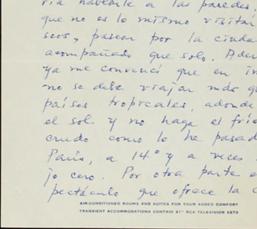 ría hablarle a las paredes,
que no es lo mismo visitar
seos, pasear por la ciuda
acompañado que solo. Ader
ya me convencí que en in
no se debe viajar más qu
países tropicales, adonde
el sol y no haga el frío
crudo como lo he pasad
París, a 14° y a veces
jo cero. Por otra parte e
pectáculo que ofrece la c
AIR-CONDITIONED ROOMS AND SUITES FOR YOUR ADDED COMFORT
TRANSIENT ACCOMMODATIONS CONTAIN 21" RCA TELEVISION SETS